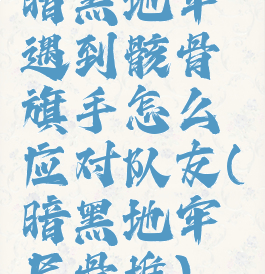 暗黑地牢
遇到骸骨
旗手怎么
应对队友(
暗黑地牢
骸骨堆)